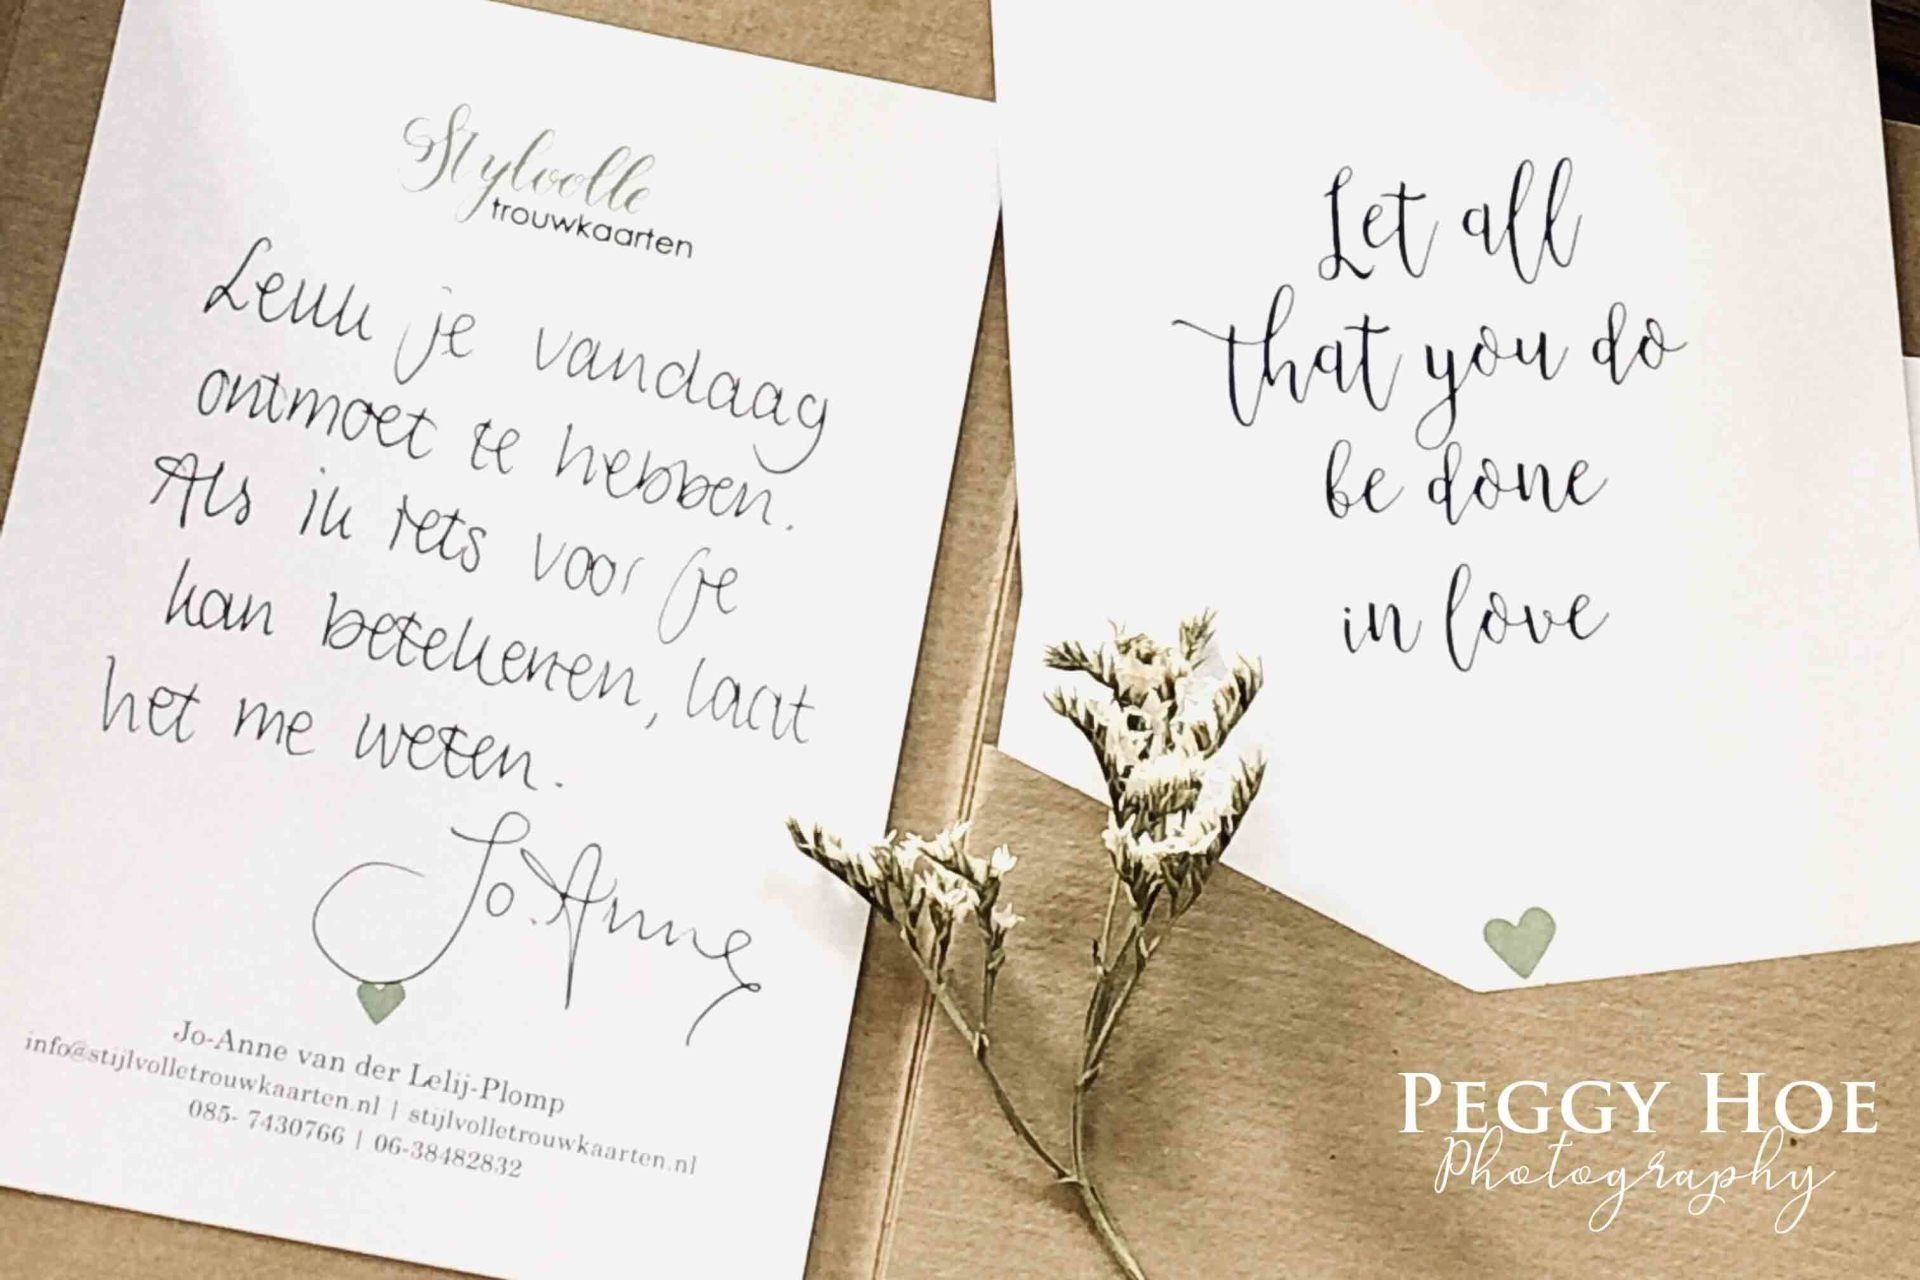 Stylvolle
trouwkaarten
Leuk je vandaag
ontmoet te hebben.
Als ik iets voor je
kan betekenen, laat
het me weten.
Jo-Anne
Jo-Anne van der Lelij-Plomp
info@stijlvolletrouwkaarten.nl | stijlvolletrouwkaarten.nl
085- 7430766 | 06-38482832
Let all
that you do
be done
in love
PEGGY HOE
Photography